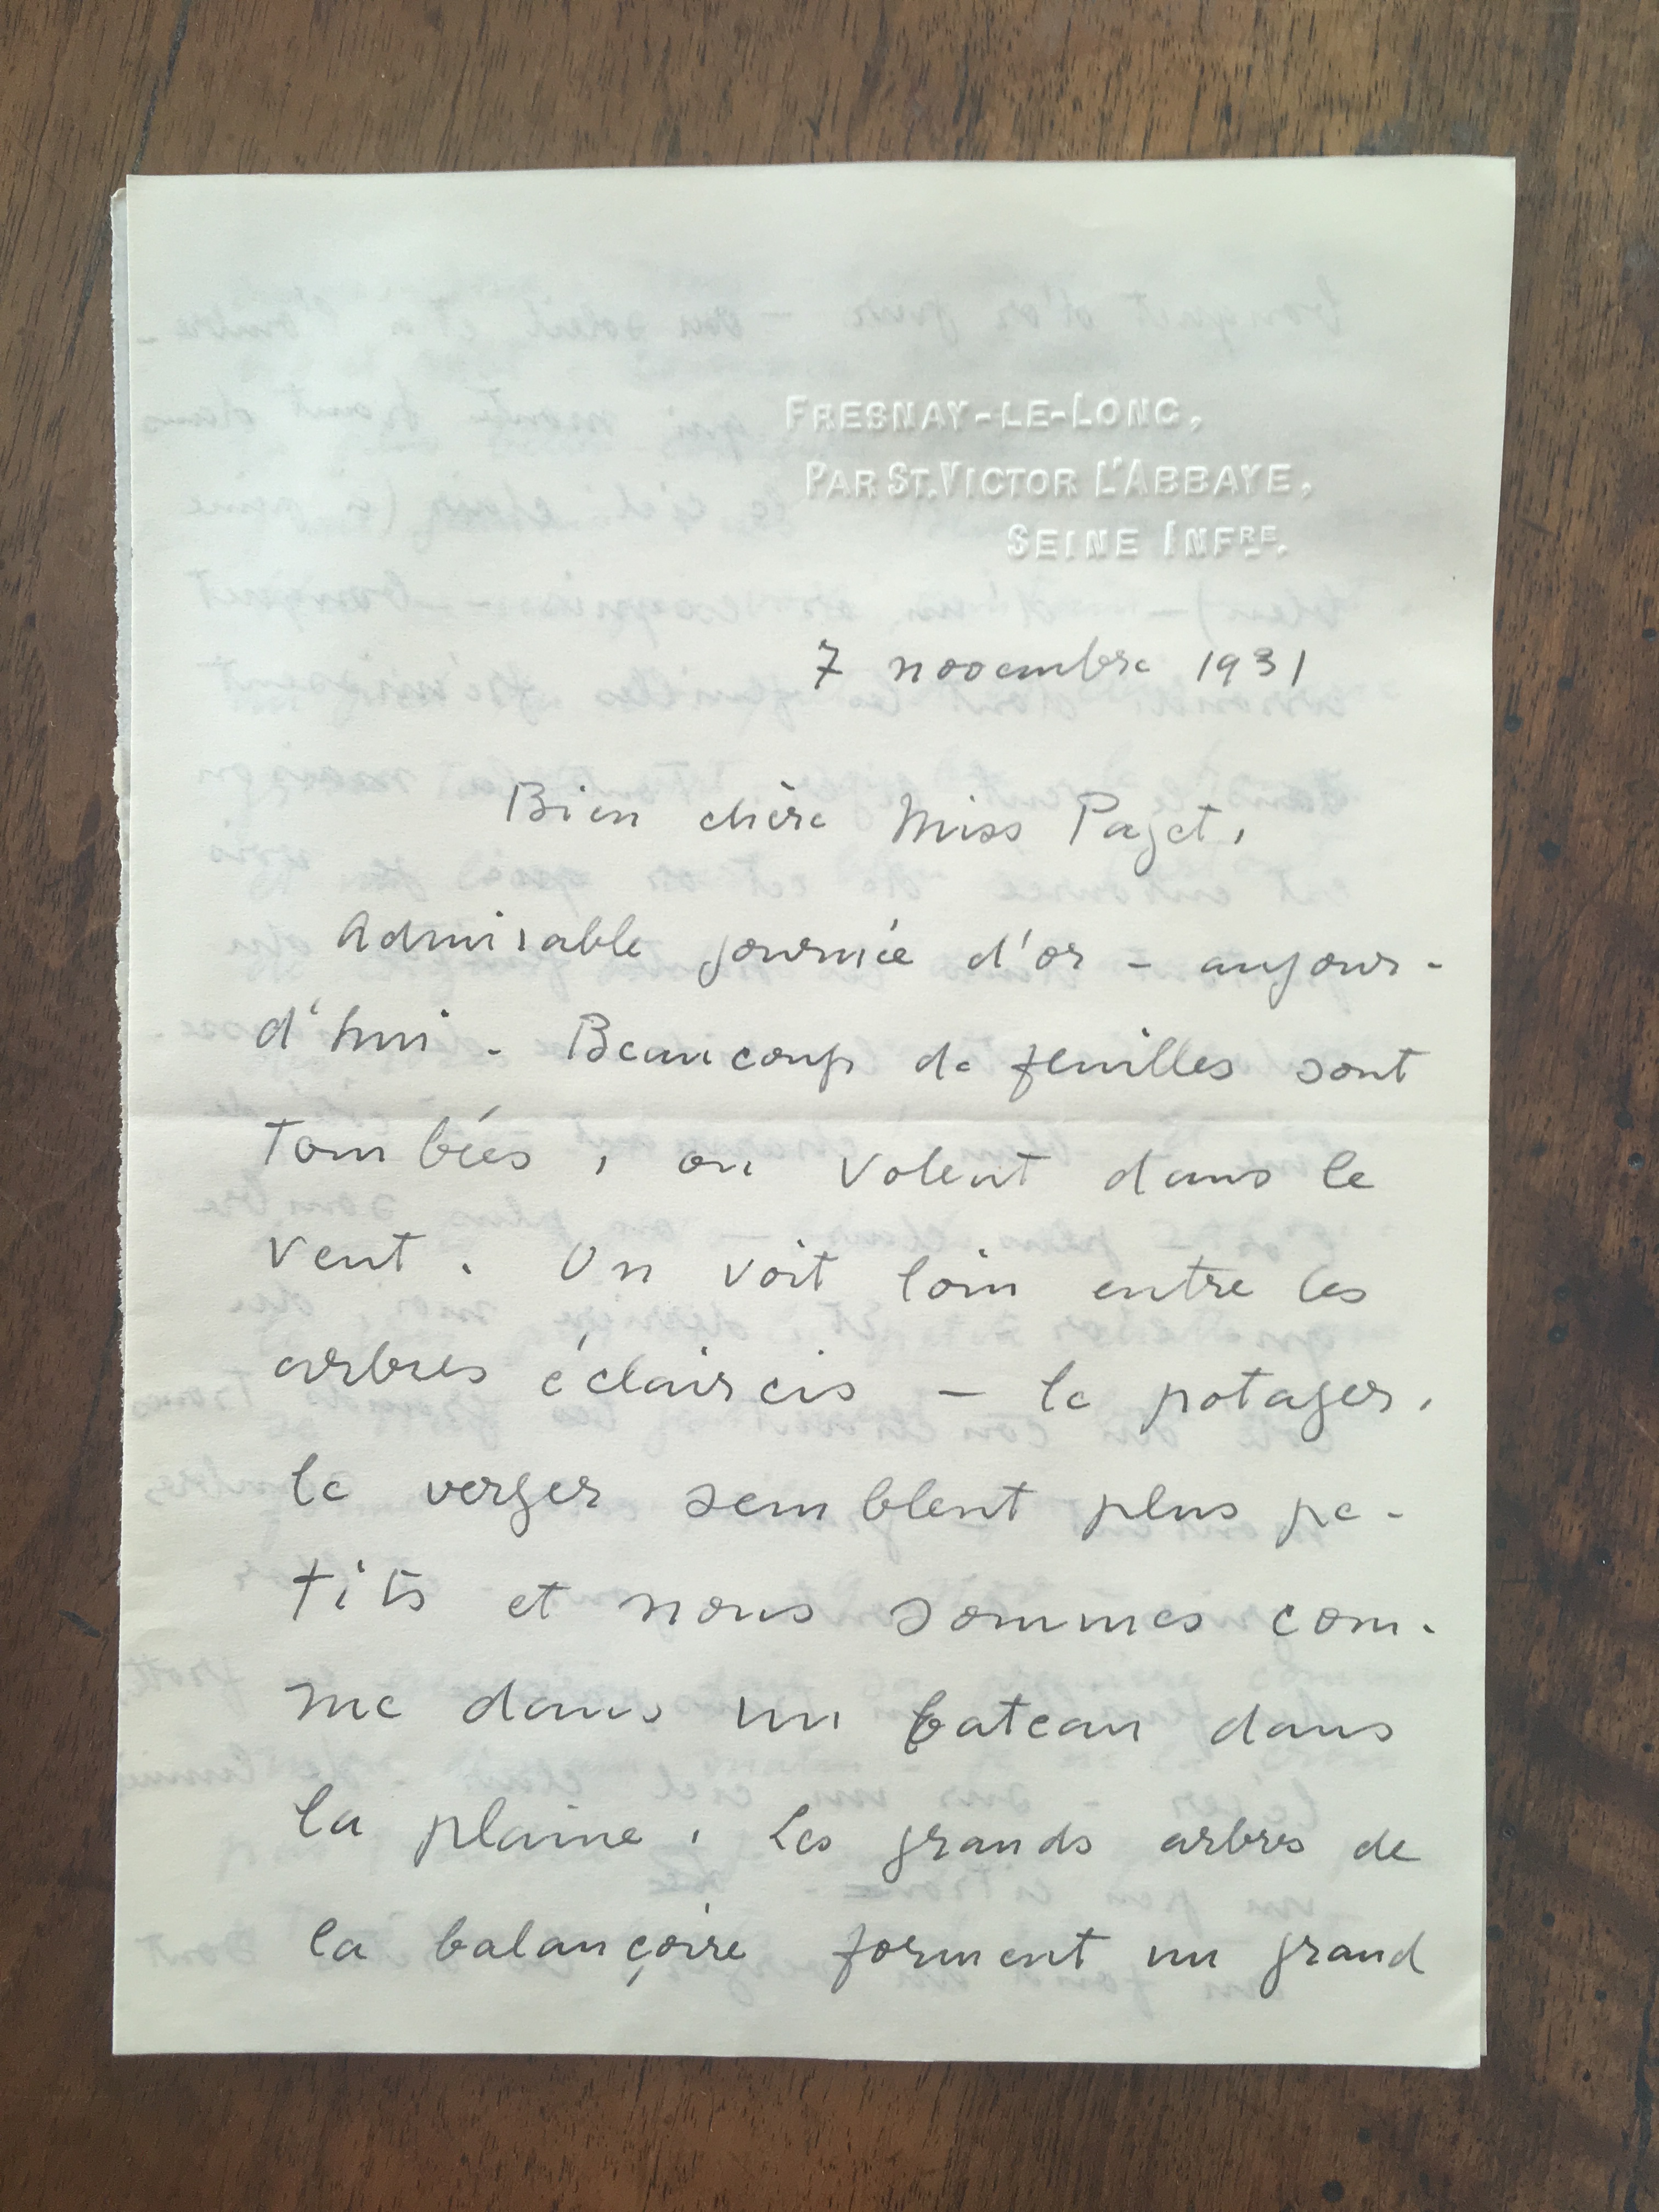 FRESNAY-LE-LONG,
PAR ST. VICTOR L'ABBAYE,
SEINE INFRE.
7 novembre 1931
Bien chère Miss Paget,
Admirable journée d'or - aujour-
d'hui - Beaucoup de feuilles sont
tombées, ou volent dans le
vent. On voit loin entre les
arbres éclaircis — le potager,
le verger semblent plus pe-
tits et nous sommes com-
me dans un bateau dans
la plaine. Les grands arbres de
la balançoire forment un grand